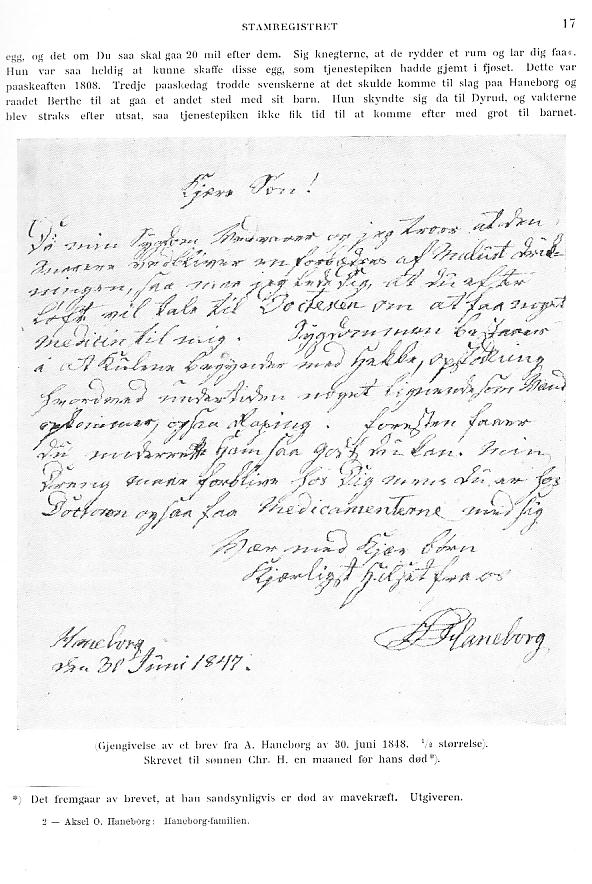 STAMREGISTRET 17
egg, og det om Du saa skal gaa 20 mil efter dem. Sig knegterne, at de rydder et rum og lar dig faa«.
Hun var saa heldig at kunne skaffe disse egg, som tjenestepiken hadde gjemt i fjøset. Dette var
paaskeaften 1808. Tredje paaskedag trodde svenskerne at det skulde komme til slag paa Haneborg og
raadet Berthe til at gaa et andet sted med sit barn. Hun skyndte sig da til Dyrud, og vakterne
blev straks efter utsat, saa tjenestepiken ikke fik tid til at komme efter med grot til barnet.
Kjære Søn!
Da min Sygdom og jeg troer at den
af Malurt Drik-
ningen, saa maa jeg bede dig, at du efter
Løfte vil tale til Doctoren om at faa noget
Medicin til mig. Sygdommen bestaaer
i at Kulene begynder med Hekke, opstødning
hvormed undertiden noget lignende som Vand
opkommer, ogsaa Raping. foresten faaer
du underrette ham saa godt du kan. min
Dreng maa forblive hos Dig mens du er hos
Doctoren ogsaa faa Medicamenterne med sig
Vær med Kjær børn
Kjærligst hilset fra os
Haneborg
Haneborg
den 30 Juni 1847.
(Gjengivelse av et brev fra A. Haneborg av 30. juni 1848. ½ størrelse).
Skrevet til sønnen Chr. H. en maaned før hans død*).
*) Det fremgaar av brevet, at han sandsynligvis er død av mavekræft. Utgiveren.
2 — Aksel O. Haneborg: Haneborg-familien.